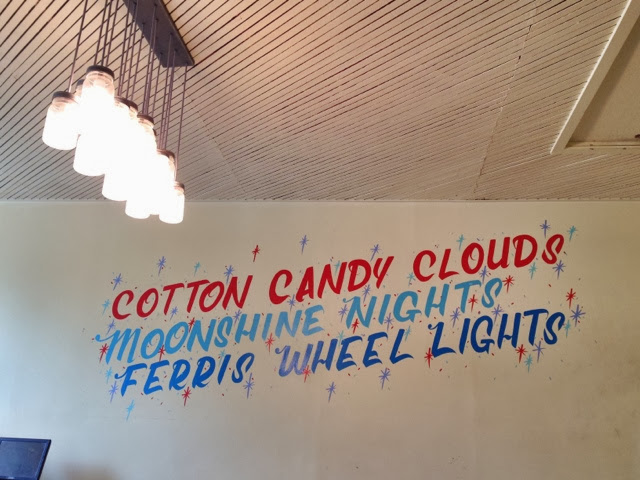 COTTON CANDY CLOUDS
MOONSHINE NIGHTS
FERRIS WHEEL LIGHTS